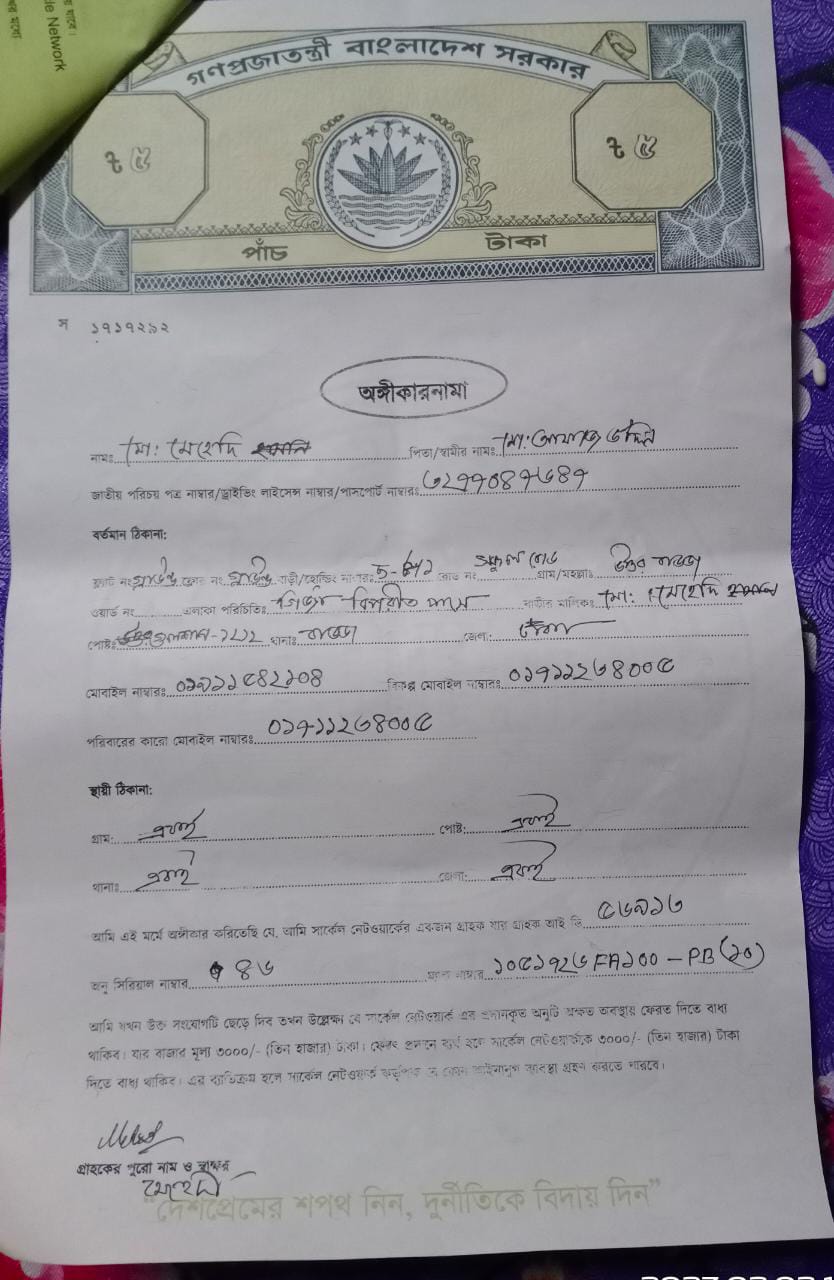 le Network
গণপ্রজাতন্ত্রী বাংলাদেশ সরকার
৳ ৫ ৳ ৫
পাঁচ টাকা
স ১৭১৭২৯২
অঙ্গীকারনামা
নামঃ মো: মেহেদি পিতা/স্বামীর নামঃ মো:
জাতীয় পরিচয় পত্র নাম্বার/ড্রাইভিং লাইসেন্স নাম্বার/পাসপোর্ট নাম্বারঃ ৩২৭৭০৪৭৬৪৭
বর্তমান ঠিকানা:
ফ্ল্যাট নং ফ্লোর নং বাড়ী/হোল্ডিং নাম্বারঃ রোড নং স্কুল রোড গ্রাম/মহল্লাঃ উত্তর বাড্ডা
ওয়ার্ড নং এলাকা পরিচিতিঃ বিপরীত পাশে বাড়ীর মালিকঃ মো: মেহেদি
পোষ্টঃ গুলশান-১২১২ থানাঃ বাড্ডা জেলা: ঢাকা
মোবাইল নাম্বারঃ বিকল্প মোবাইল নাম্বারঃ ০১৭১১২৬৪০০৫
পরিবারের কারো মোবাইল নাম্বারঃ ০১৭১১২৬৪০০৫
স্থায়ী ঠিকানা:
গ্রাম: একই পোষ্ট: একই
থানাঃ একই জেলা: একই
আমি এই মর্মে অঙ্গীকার করিতেছি যে, আমি সার্কেল নেটওয়ার্কের একজন গ্রাহক যার গ্রাহক আই ডি ৫৬৯১৬
অনু সিরিয়াল নাম্বার ৪৬ নাম্বার ১০৫১৭২৬FA১০০-PB(২০)
আমি যখন উক্ত সংযোগটি ছেড়ে দিব তখন উল্লেক্ষা যে সার্কেল নেটওয়ার্ক এর প্রদানকৃত অনুটি অক্ষত অবস্থায় ফেরত দিতে বাধ্য
থাকিব। যার বাজার মূল্য ৩০০০/- (তিন হাজার) টাকা। ফেরৎ প্রদানে ব্যর্থ হলে সার্কেল নেটওয়ার্ককে ৩০০০/- (তিন হাজার) টাকা
দিতে বাধ্য থাকিব। এর ব্যতিক্রম হলে সার্কেল নেটওয়ার্ক কর্তৃপক্ষ যে কোন আইনানুগ ব্যবস্থা গ্রহণ করতে পারবে।
গ্রাহকের পুরো নাম ও স্বাক্ষর
মেহেদী
"দেশপ্রেমের শপথ নিন, দুর্নীতিকে বিদায় দিন"